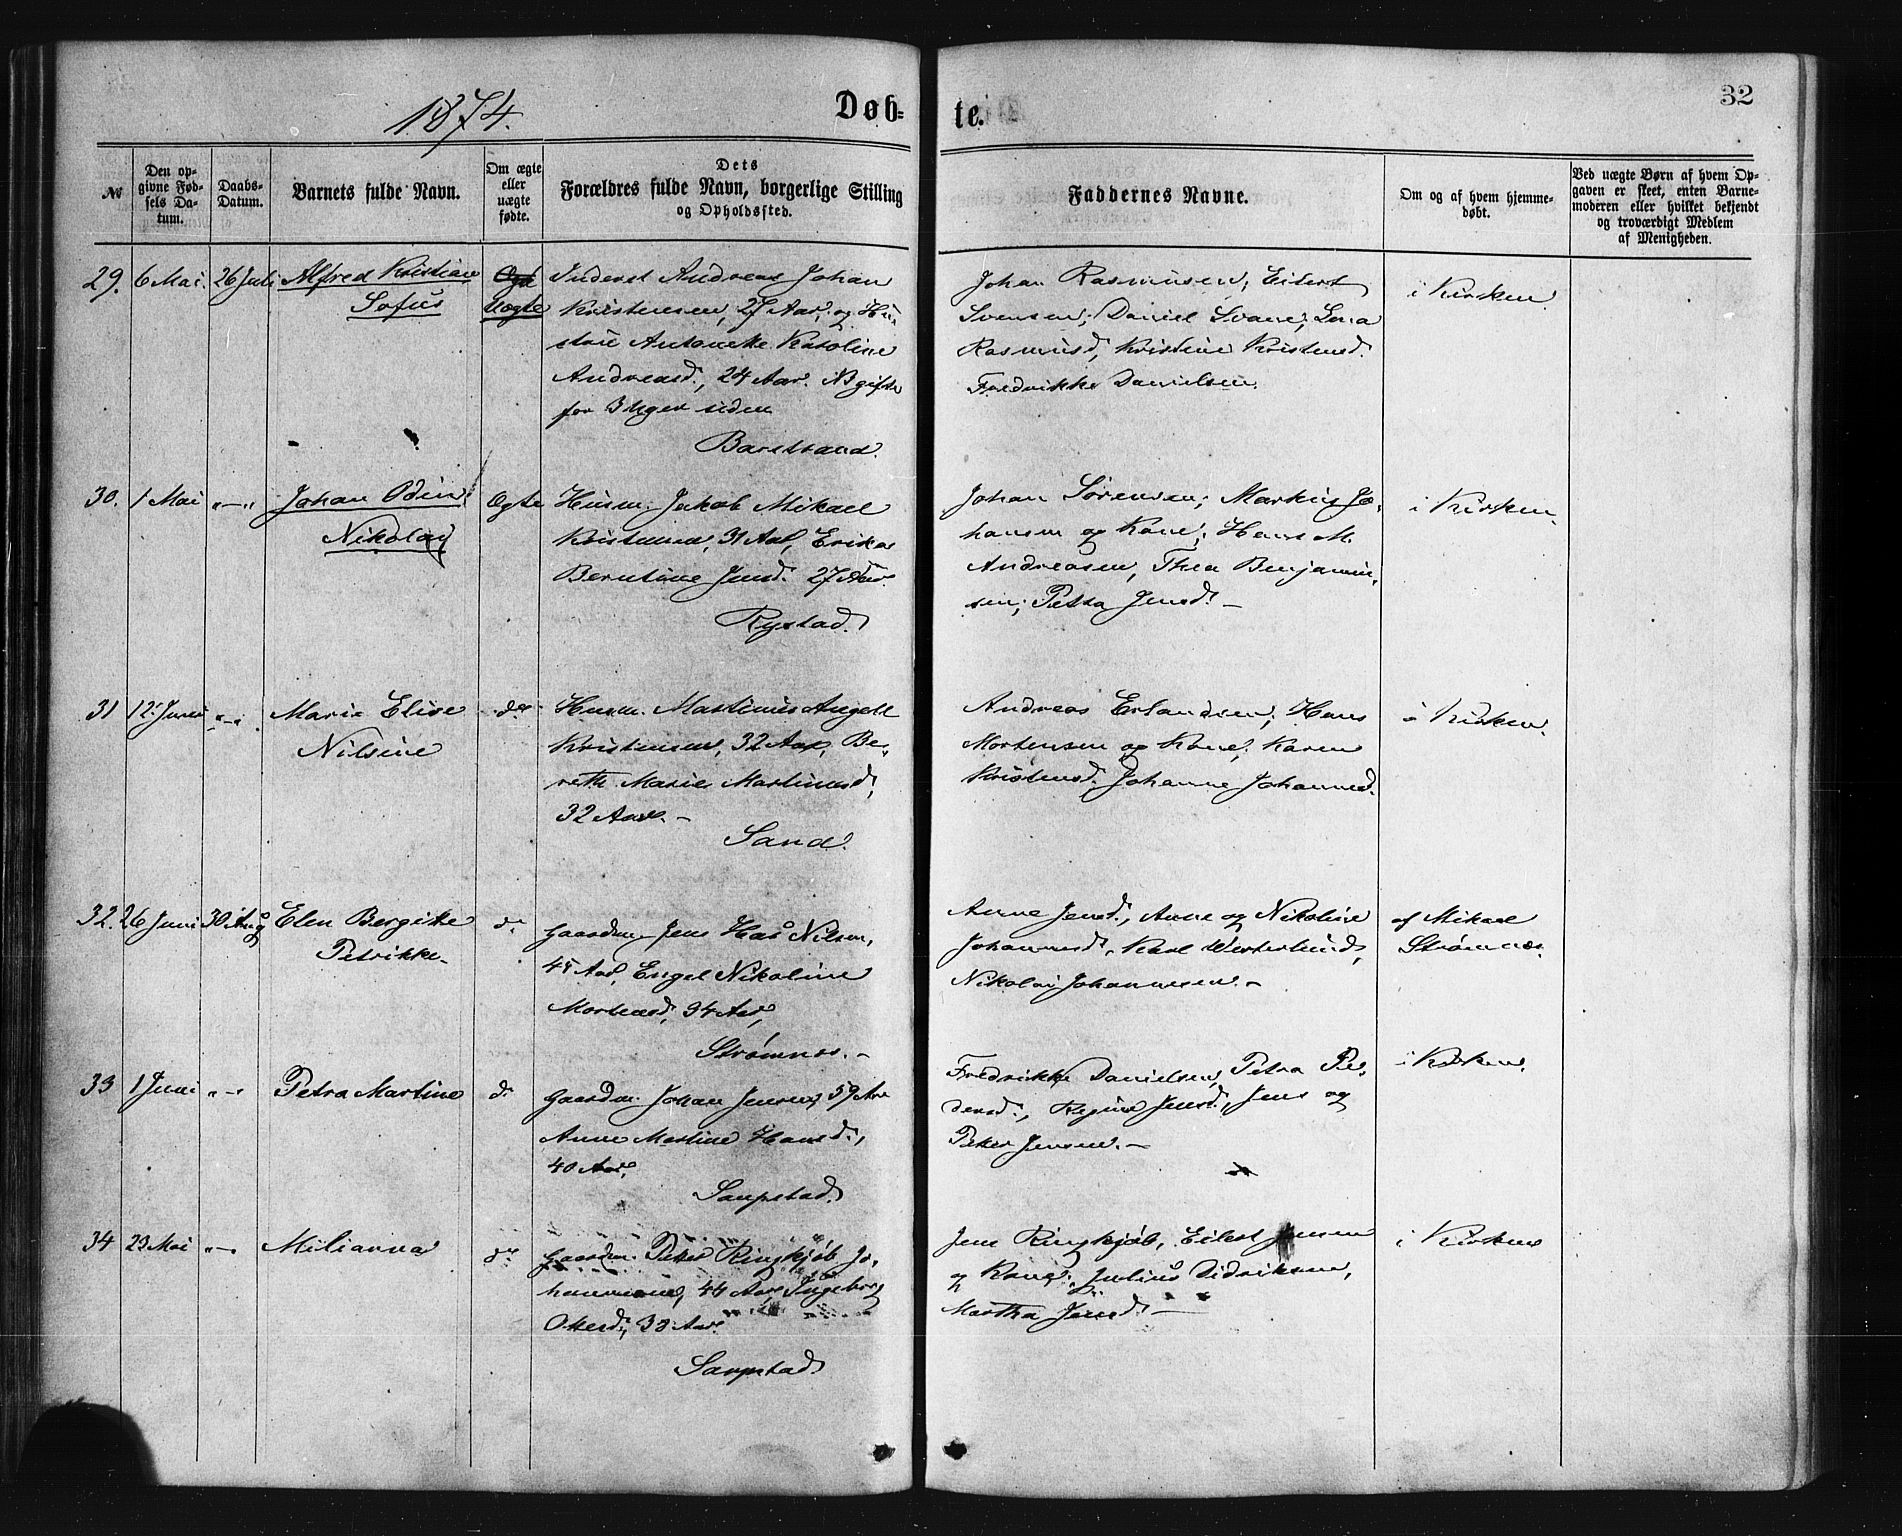 1874.
Døb=
te.
32
№
Den op-
givne Fød-
sels Da-
tum.
Daabs-
Datum.
Barnets fulde Navn.
Om ægte
eller
uægte
fødte.
Dets
Forældres fulde Navn, borgerlige Stilling
og Opholdssted.
Faddernes Navne.
Om og af hvem hjemme-
døbt.
Ved uægte Børn af hvem Op-
gaven er skeet, enten Barne-
moderen eller hvilket bekjendt
og troværdigt Medlem
af Menigheden.
29. 6 Mai. 26 Juli Alfred Kristian
Sofus
Uægte
Inderst Andreas Johan
Kristensen, 27 Aar, og Hu-
stru Antonette Karoline
Andreasd., 24 Aar. NB gifte
for 3 Uger siden
Barstrand.
Johan Rasmusen, Eilert
Svensen, Daniel Svane, Lena
Rasmusd, Kristine Kristensd.
Fredrikke Danielsen.
i Kirken
30. 1 Mai „—„ Johan Odin
Nikolay
Ægte
Husm. Jakob Mikael
Kristensen, 31 Aar, Erika
Berntine Jensd. 27 Aar.
Rystad.
Johan Sørensen, Markus Jo-
hansen og Kone, Hans M.
Andreasen, Thea Benjamin-
sen, Petra Jensd. —
i Kirken.
31 12. Juni „—„ Marie Elise
Nilsine
do
Husm. Martinus Angell
Kristensen, 32 Aar, Be-
rethe Marie Martinusd,
32 Aar. —
Sand.
Andreas Erlandsen, Hans
Mortensen og Kone, Karen
Kristensd, Johanne Johannesd.
i Kirken.
32. 26 Juni 30 Aug Elen Bergitte
Petrikke.
do
Gaardm. Jens Has Nilsen,
45 Aar, Engel Nikoline
Mortensd, 34 Aar,
Strømnes. —
Anne Jensd., Anne og Nikoline
Johannesd, Karl Westerlund,
Nikolai Johannesen. —
af Mikael
Strømnes.
33 1 Juni „—„ Petra Martine
do
Gaardm. Johan Jensen, 59 Aar
Anne Martine Hansd.,
40 Aar,
Saupstad.
Fredrikke Danielsen, Petra Pe-
dersd., Regine Jensd., Jens og
Peter Jensen. —
i Kirken.
34 23 Mai „—„ Milianna
do
Gaardm. Peter Ringkjøb Jo-
hannesen, 44 Aar, Ingeborg
Olsd, 38 Aar.
Saupstad.
Jens Ringkjøb, Eilert Jensen
og Kone, Julius Didriksen,
Martha Jensd. —
i Kirken